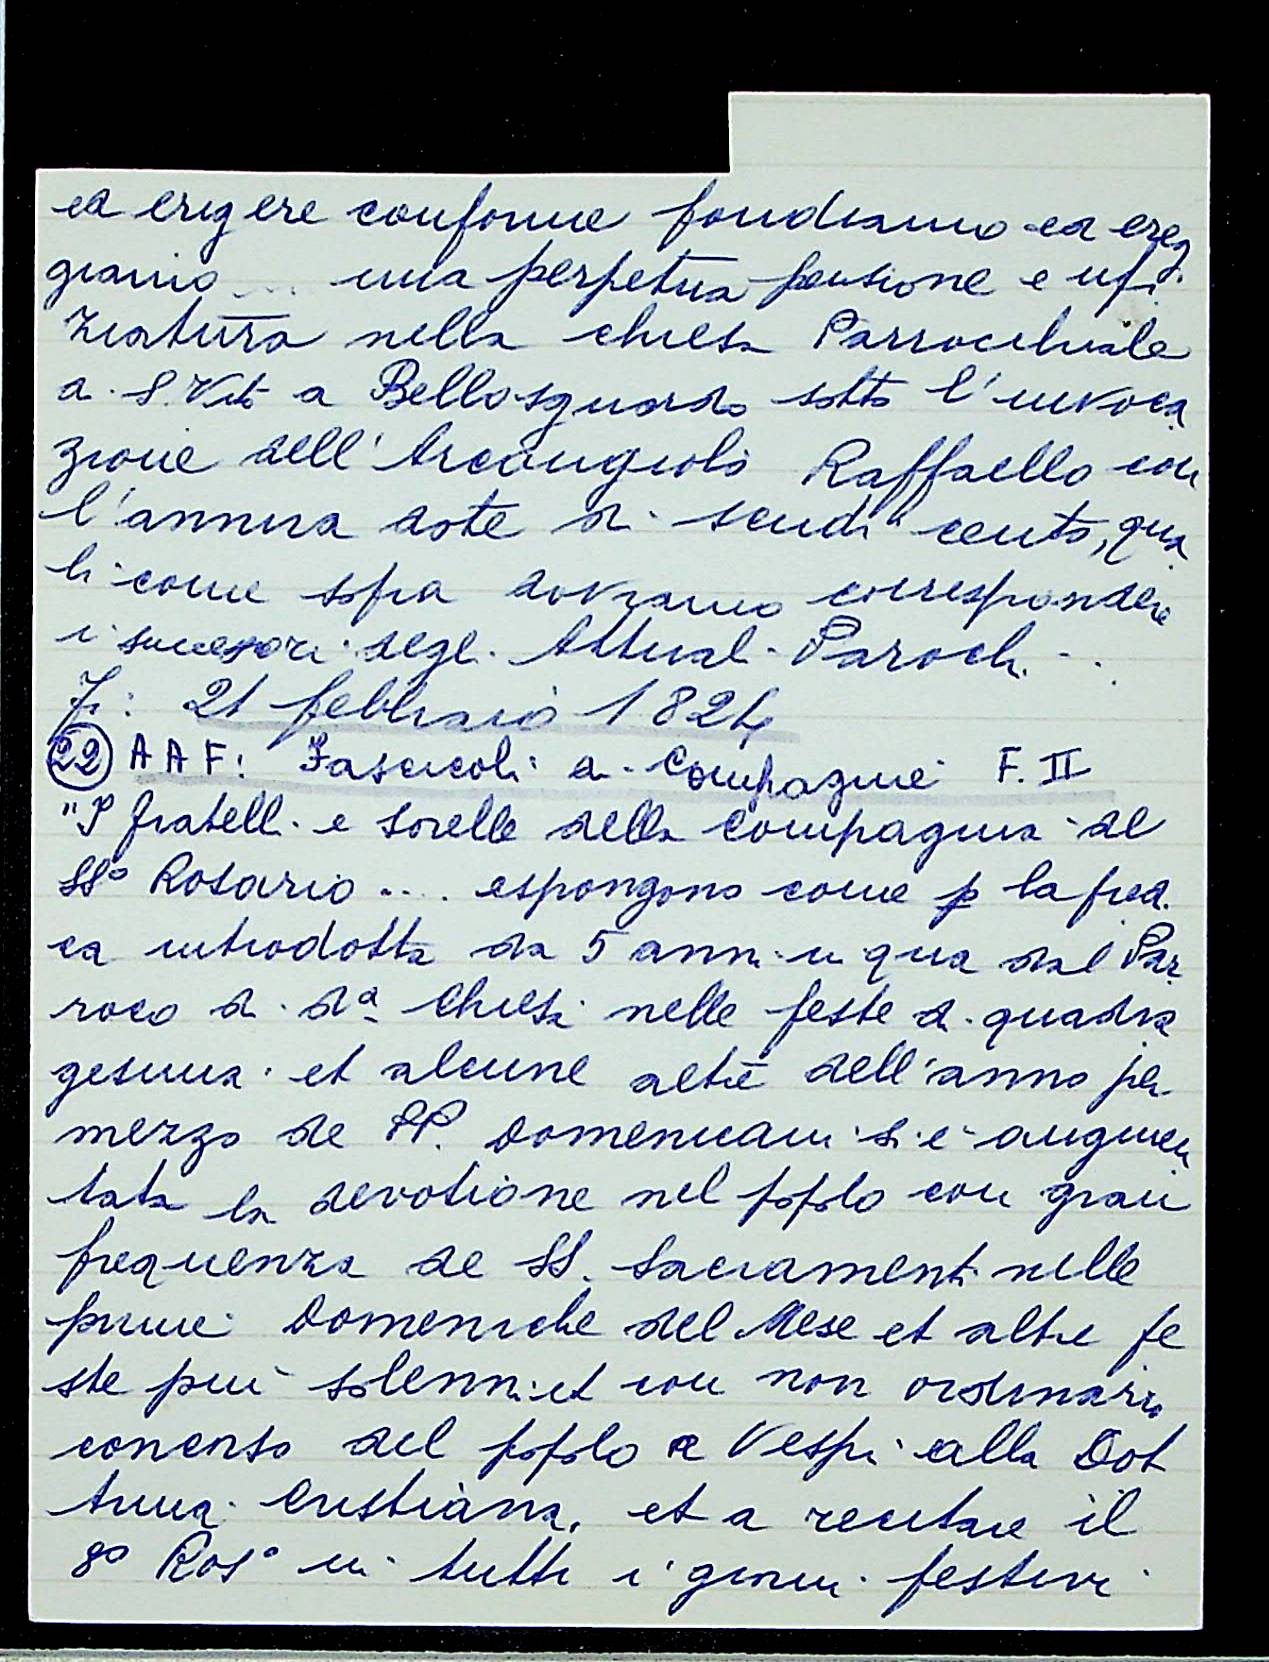 ed erigere conforme fondiamo ed ereg
giamo ... una perpetua pensione e ufi
ziatura nella chiesa Parrocchiale
a S. Vito a Bellosguardo sotto l'invoca
zione dell'Arcangiolo Raffaello con
l'annua dote di scudi cento, qua
li come sopra dovranno corrispondere
i successori degl. Attual. Paroch. ...
Fi: 21 febbraio 1824
(22) AAF: Fascicoli di Compagnie F. II
"I fratelli e sorelle della Compagnia del
SSº Rosario .... espongono come p la pred.
ca introdotta da 5 anni in qua dal Par
roco di dª Chiesa nelle feste di quadra
gesima et alcune altre dell'anno per
mezzo de PP. Domenicani si è augmen
tata la devotione nel popolo con gran
frequenza de SS. Sacramenti nelle
prime Domeniche del Mese et altre fe
ste più solenni et con non ordinario
concorso del popolo a Vespri alla Dot
trina Cristiana, et a recitare il
Sº Rosº in tutti i giorni festivi